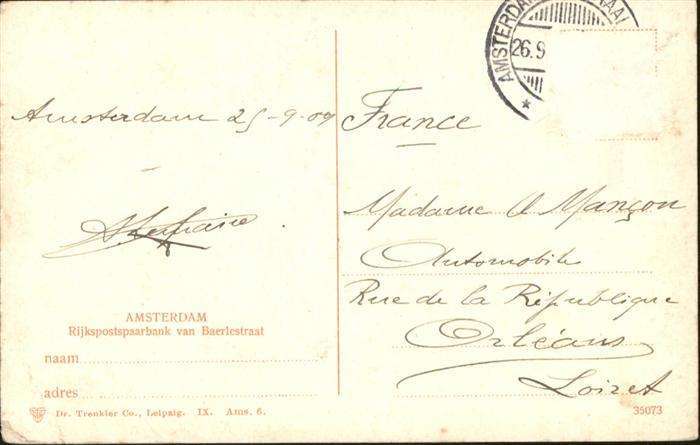 AMSTERDAM
26.9
Amsterdam 25-9-09
France
Madame A Mançon
Automobile
Rue de la République
Orléans
Loiret
AMSTERDAM
Rijkspostspaarbank van Baerlestraat
naam
adres
Dr. Trenkler Co., Leipzig. IX. Ams. 6.
35073